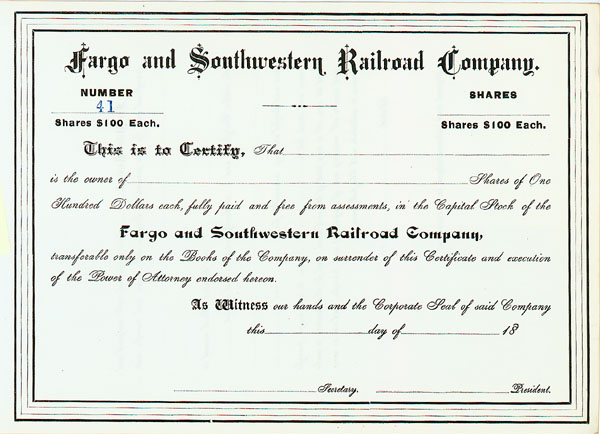 Fargo and Southwestern Railroad Company.
NUMBER
41
Shares $100 Each.
SHARES
Shares $100 Each.
This is to Certify, That
is the owner of Shares of One
Hundred Dollars each, fully paid and free from assessments, in the Capital Stock of the
Fargo and Southwestern Railroad Company,
transferable only on the Books of the Company, on surrender of this Certificate and execution
of the Power of Attorney endorsed hereon.
As Witness our hands and the Corporate Seal of said Company
this day of 18
Secretary. President.